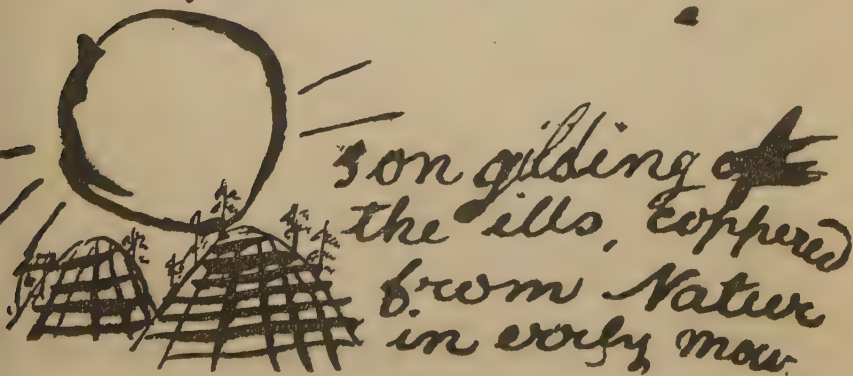 son gilding of
the ills, coppered
from Natur
in erly mow.